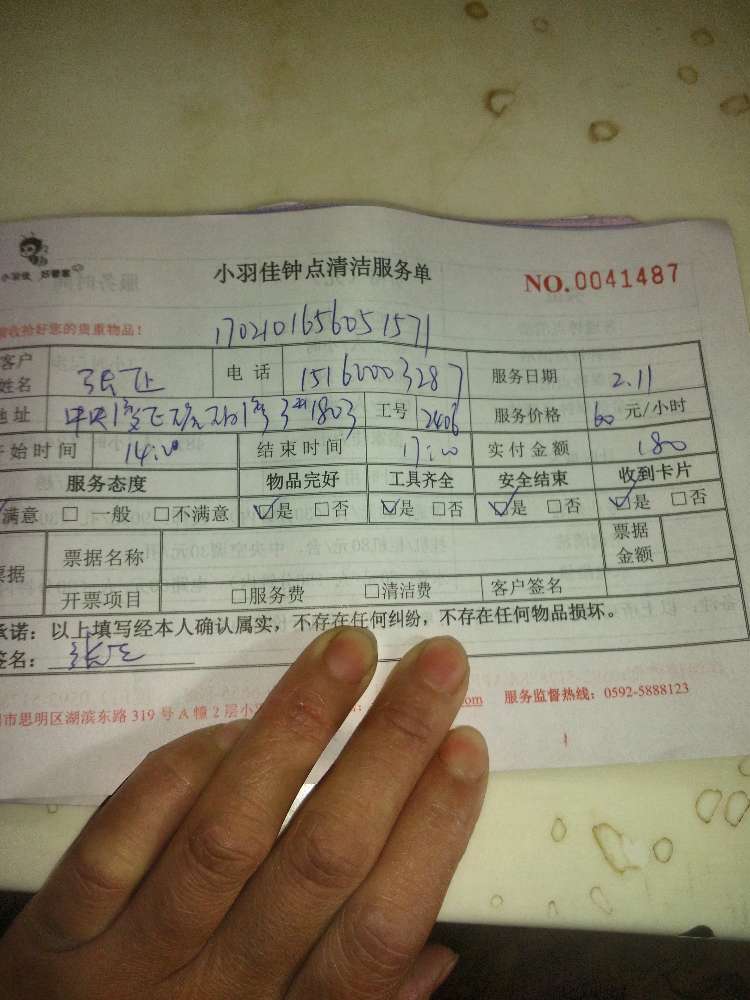 小羽佳 好管家
小羽佳钟点清洁服务单
NO.0041487
收拾好您的贵重物品!
1702101656051571
客户姓名 张 电话 15160003287 服务日期 2.11
地址 中央 1803 工号 2406 服务价格 60元/小时
开始时间 14:00 结束时间 17:00 实付金额 180
服务态度 物品完好 工具齐全 安全结束 收到卡片
满意 □一般 □不满意 ☑是 □否 ☑是 □否 ☑是 □否 ☑是 □否
票据 票据名称 票据金额
开票项目 □服务费 □清洁费 客户签名
承诺：以上填写经本人确认属实，不存在任何纠纷，不存在任何物品损坏。
签名：张
市思明区湖滨东路 319 号 A 幢 2 层小 om 服务监督热线：0592-5888123